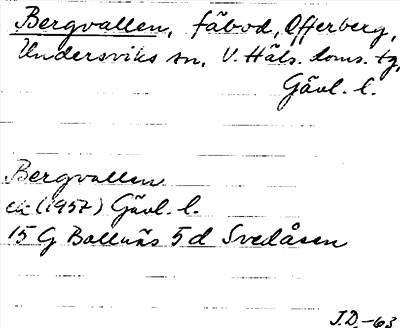 Bergvallen, fäbod, Offerberg,
Undersviks sn, V. Häls. doms. tg,
Gävl. l.
Bergvallen
ek (1957) Gävl. l.
15 G Bollnäs 5 d Svedåsen
J.D.-63